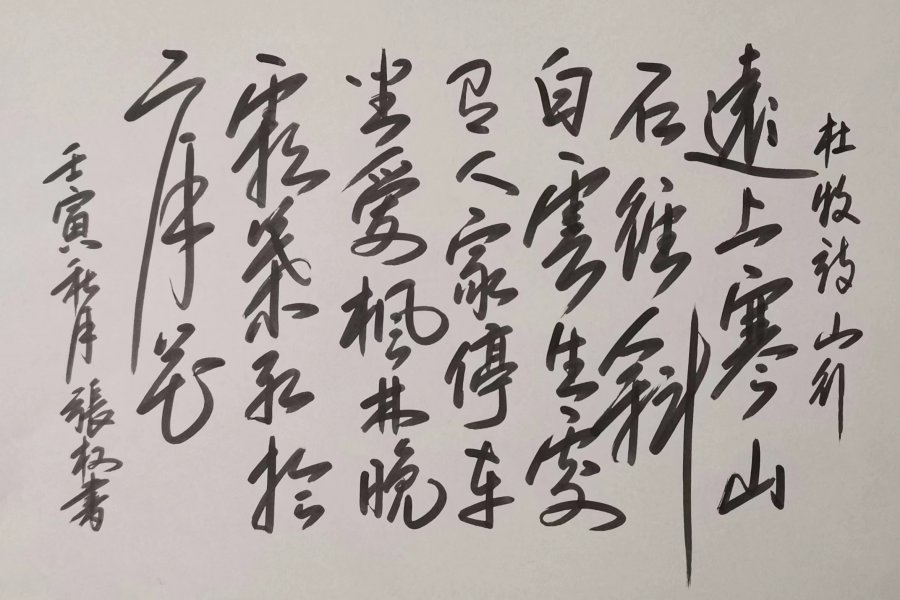 杜牧诗山行
遠上寒山
石径斜
白雲生処
有人家停车
坐爱楓林晚
霜葉红於
二月花
壬寅秋月張权书